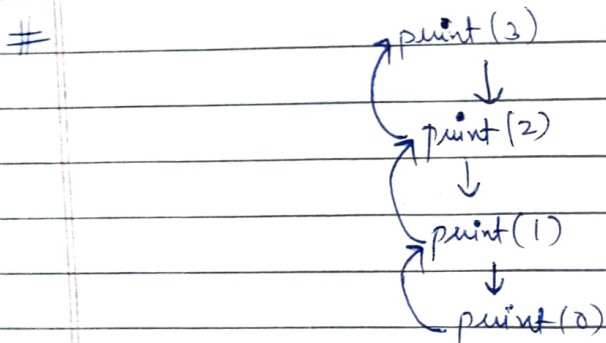 #
print(3)
print(2)
print(1)
print(0)